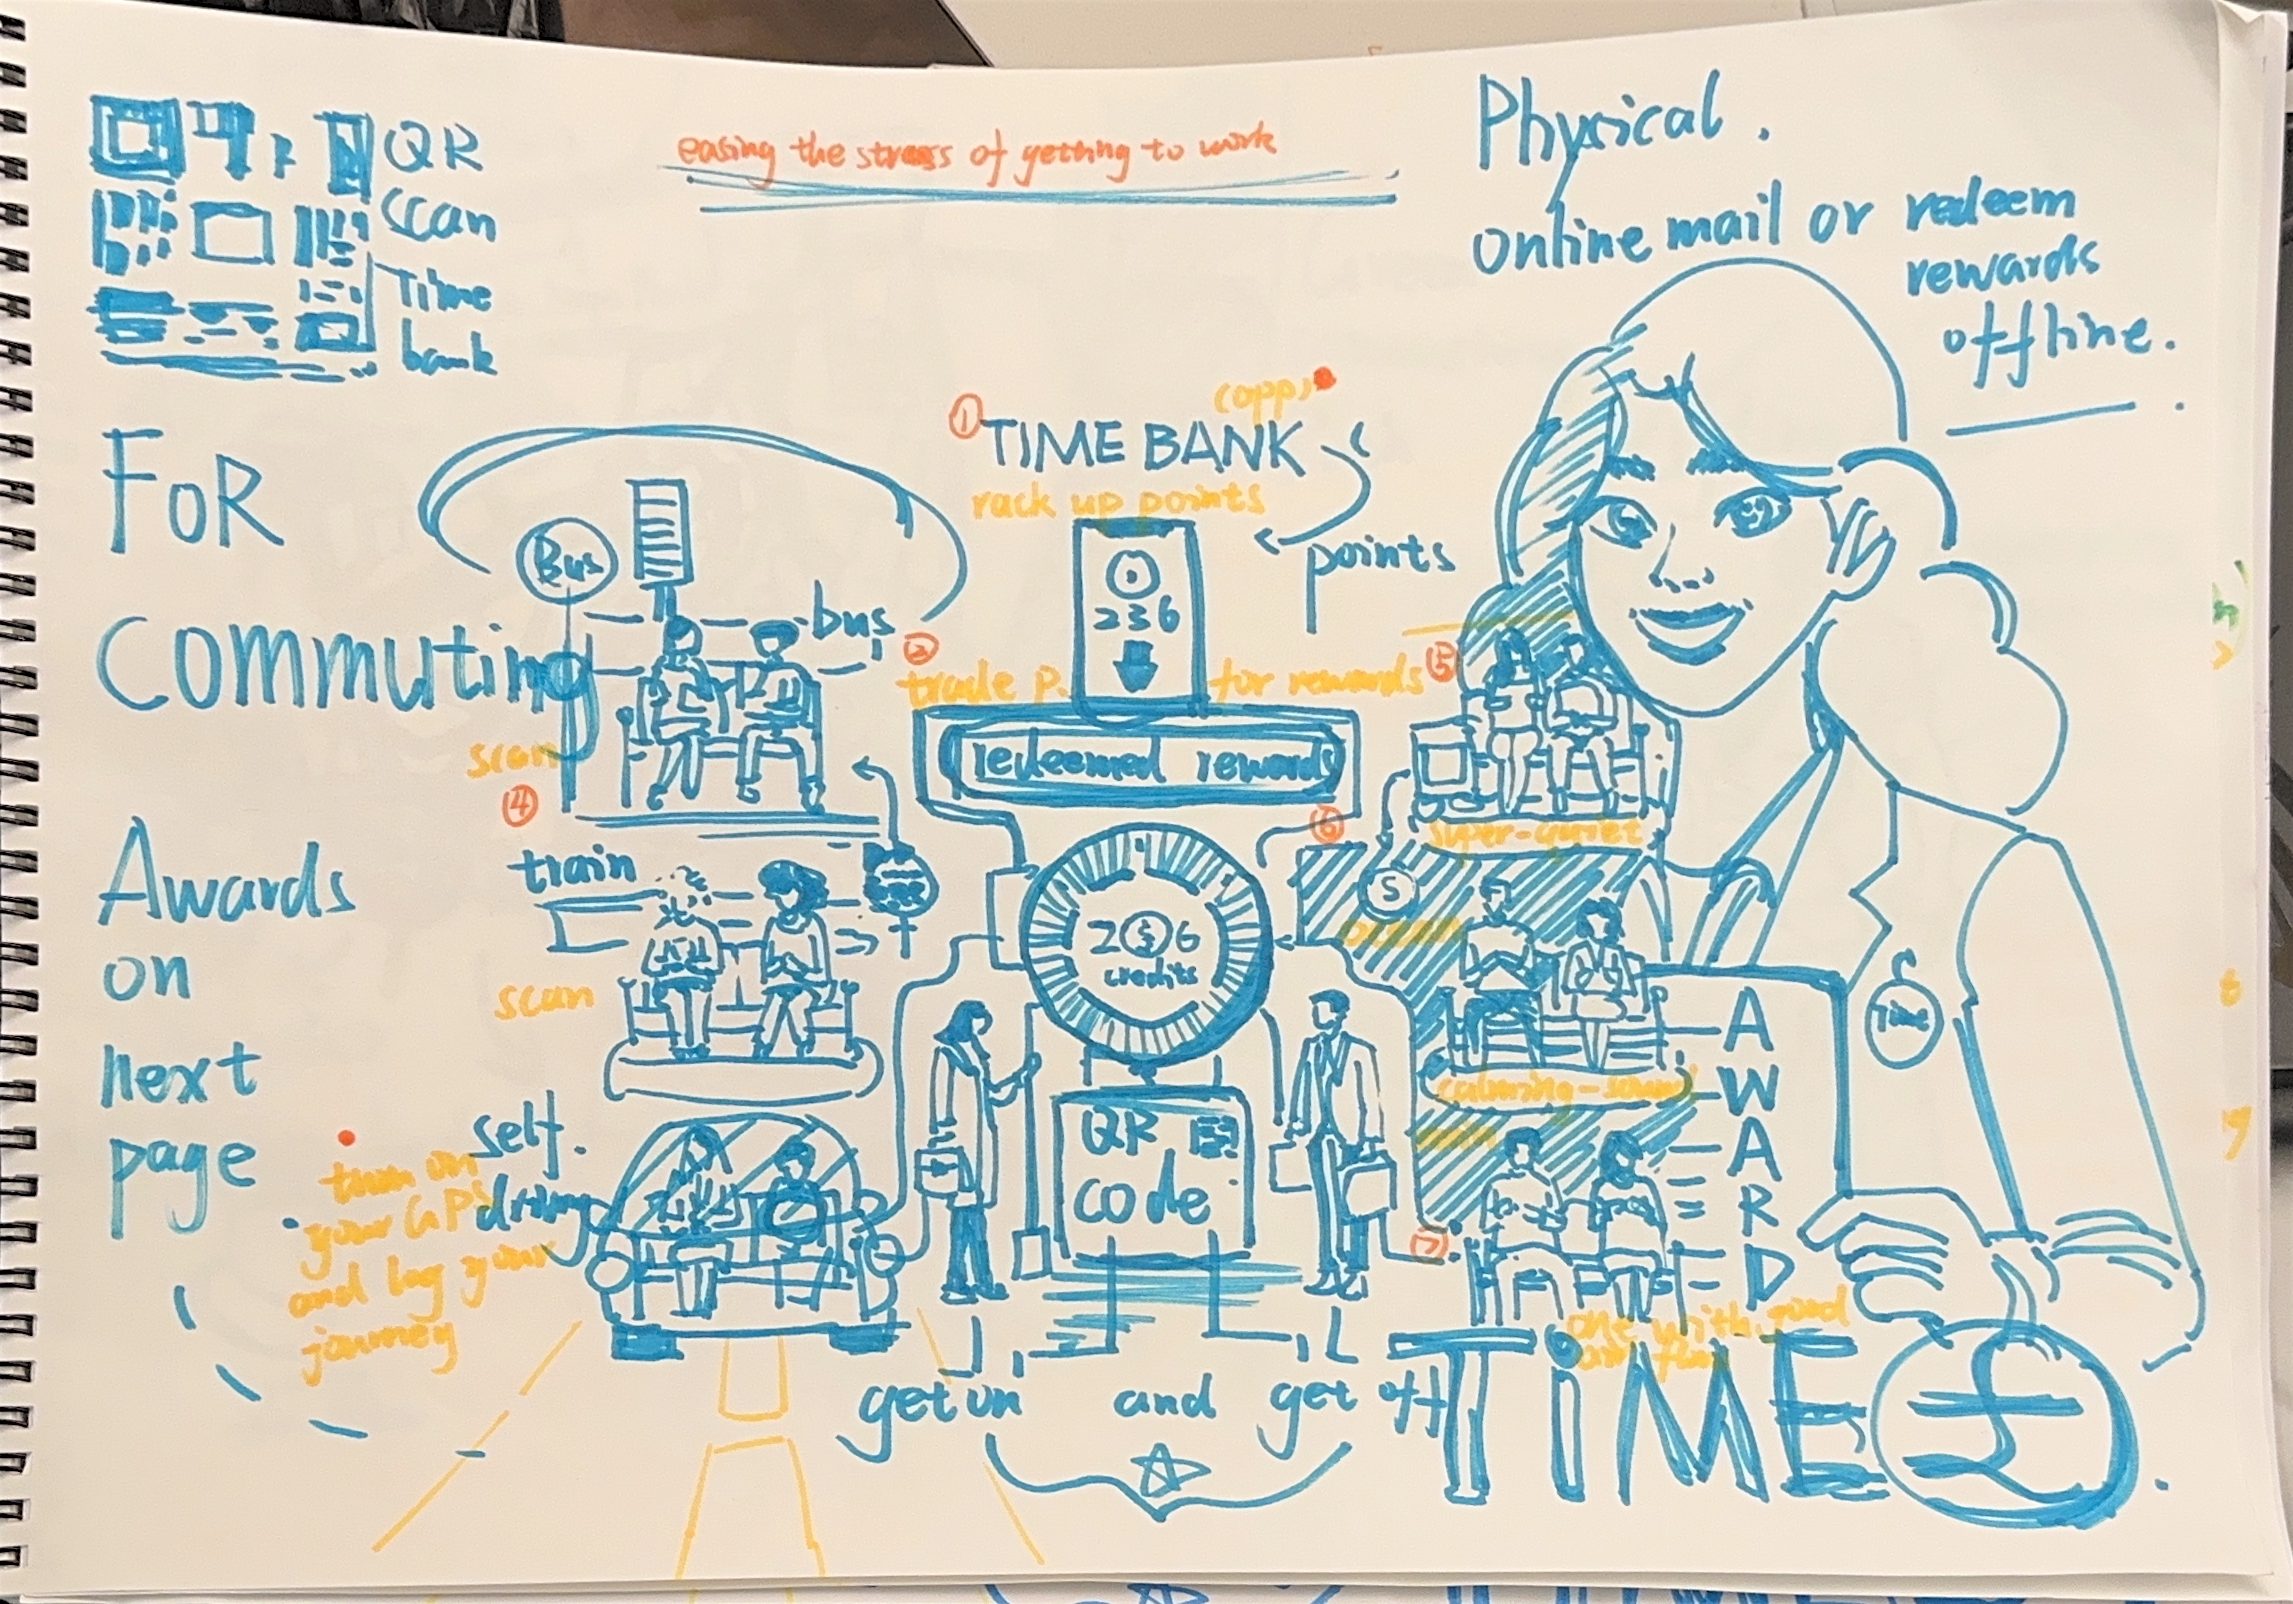 easing the stress of getting to work
QR
scan
Time
bank
Physical.
online mail or redeem
rewards
offline.
FOR
Commuting
Awards
on
next
page
①
TIME BANK
rack up points
points
236
Bus
bus
②
trade p.
for rewards
⑤
redeemed rewards
scan
④
train
scan
⑥
super-quiet
S
2 $ 6
credits
self.
driving
turn on
your GPS
and log your
journey
QR
code
⑦
Time
A
W
A
R
D
one with good
get on and get off
TiME
£